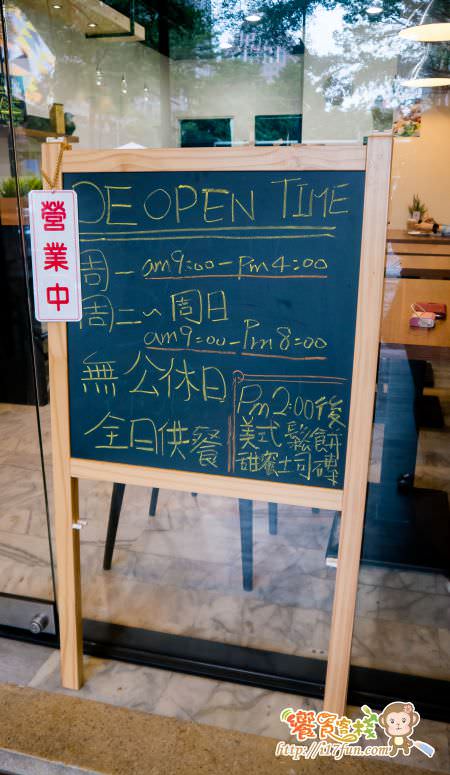 DE OPEN TIME
營業中
周一 am9:00-Pm4:00
周二~周日
am9:00-Pm8:00
無公休日
全日供餐
Pm2:00後
美式鬆餅
甜蜜土司磚
饗食客棧
http://i17fun.com/